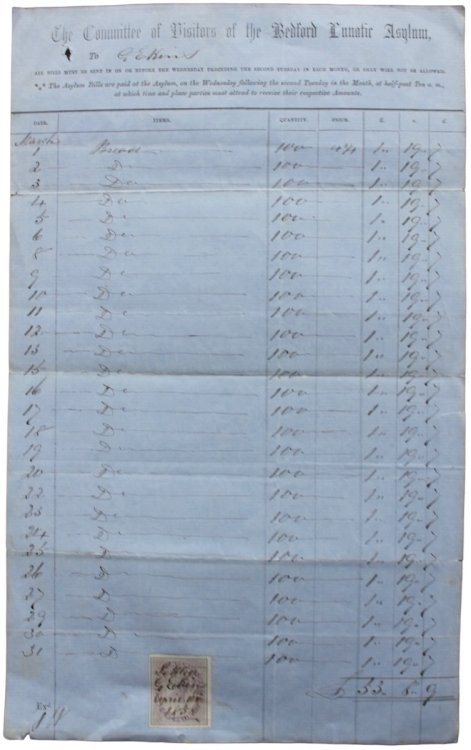 The Committee of Visitors of the Bedford Lunatic Asylum,
To G Ekins
ALL BILLS MUST BE SENT IN ON OR BEFORE THE WEDNESDAY PRECEDING THE SECOND TUESDAY IN EACH MONTH, OR THEY WILL NOT BE ALLOWED.
*** The Asylum Bills are paid at the Asylum, on the Wednesday following the second Tuesday in the Month, at half-past Ten a. m.,
at which time and place parties must attend to receive their respective Amounts.
DATE. ITEMS. QUANTITY. PRICE. £. s. d.
March
1 Bread 100 4¾ 1 19 7
2 Do 100 1 19 7
3 Do 100 1 19 7
4 Do 100 1 19 7
5 Do 100 1 19 7
6 Do 100 1 19 7
8 Do 100 1 19 7
9 Do 100 1 19 7
10 Do 100 1 19 7
11 Do 100 1 19 7
12 Do 100 1 19 7
13 Do 100 1 19 7
15 Do 100 1 19 7
16 Do 100 1 19 7
17 Do 100 1 19 7
18 Do 100 1 19 7
19 Do 100 1 19 7
20 Do 100 1 19 7
22 Do 100 1 19 7
23 Do 100 1 19 7
24 Do 100 1 19 7
25 Do 100 1 19 7
26 Do 100 1 19 7
27 Do 100 1 19 7
29 Do 100 1 19 7
30 Do 100 1 19 7
31 Do 100 1 19 7
£ 53 8 9
Settled
G Ekins
April
Exd